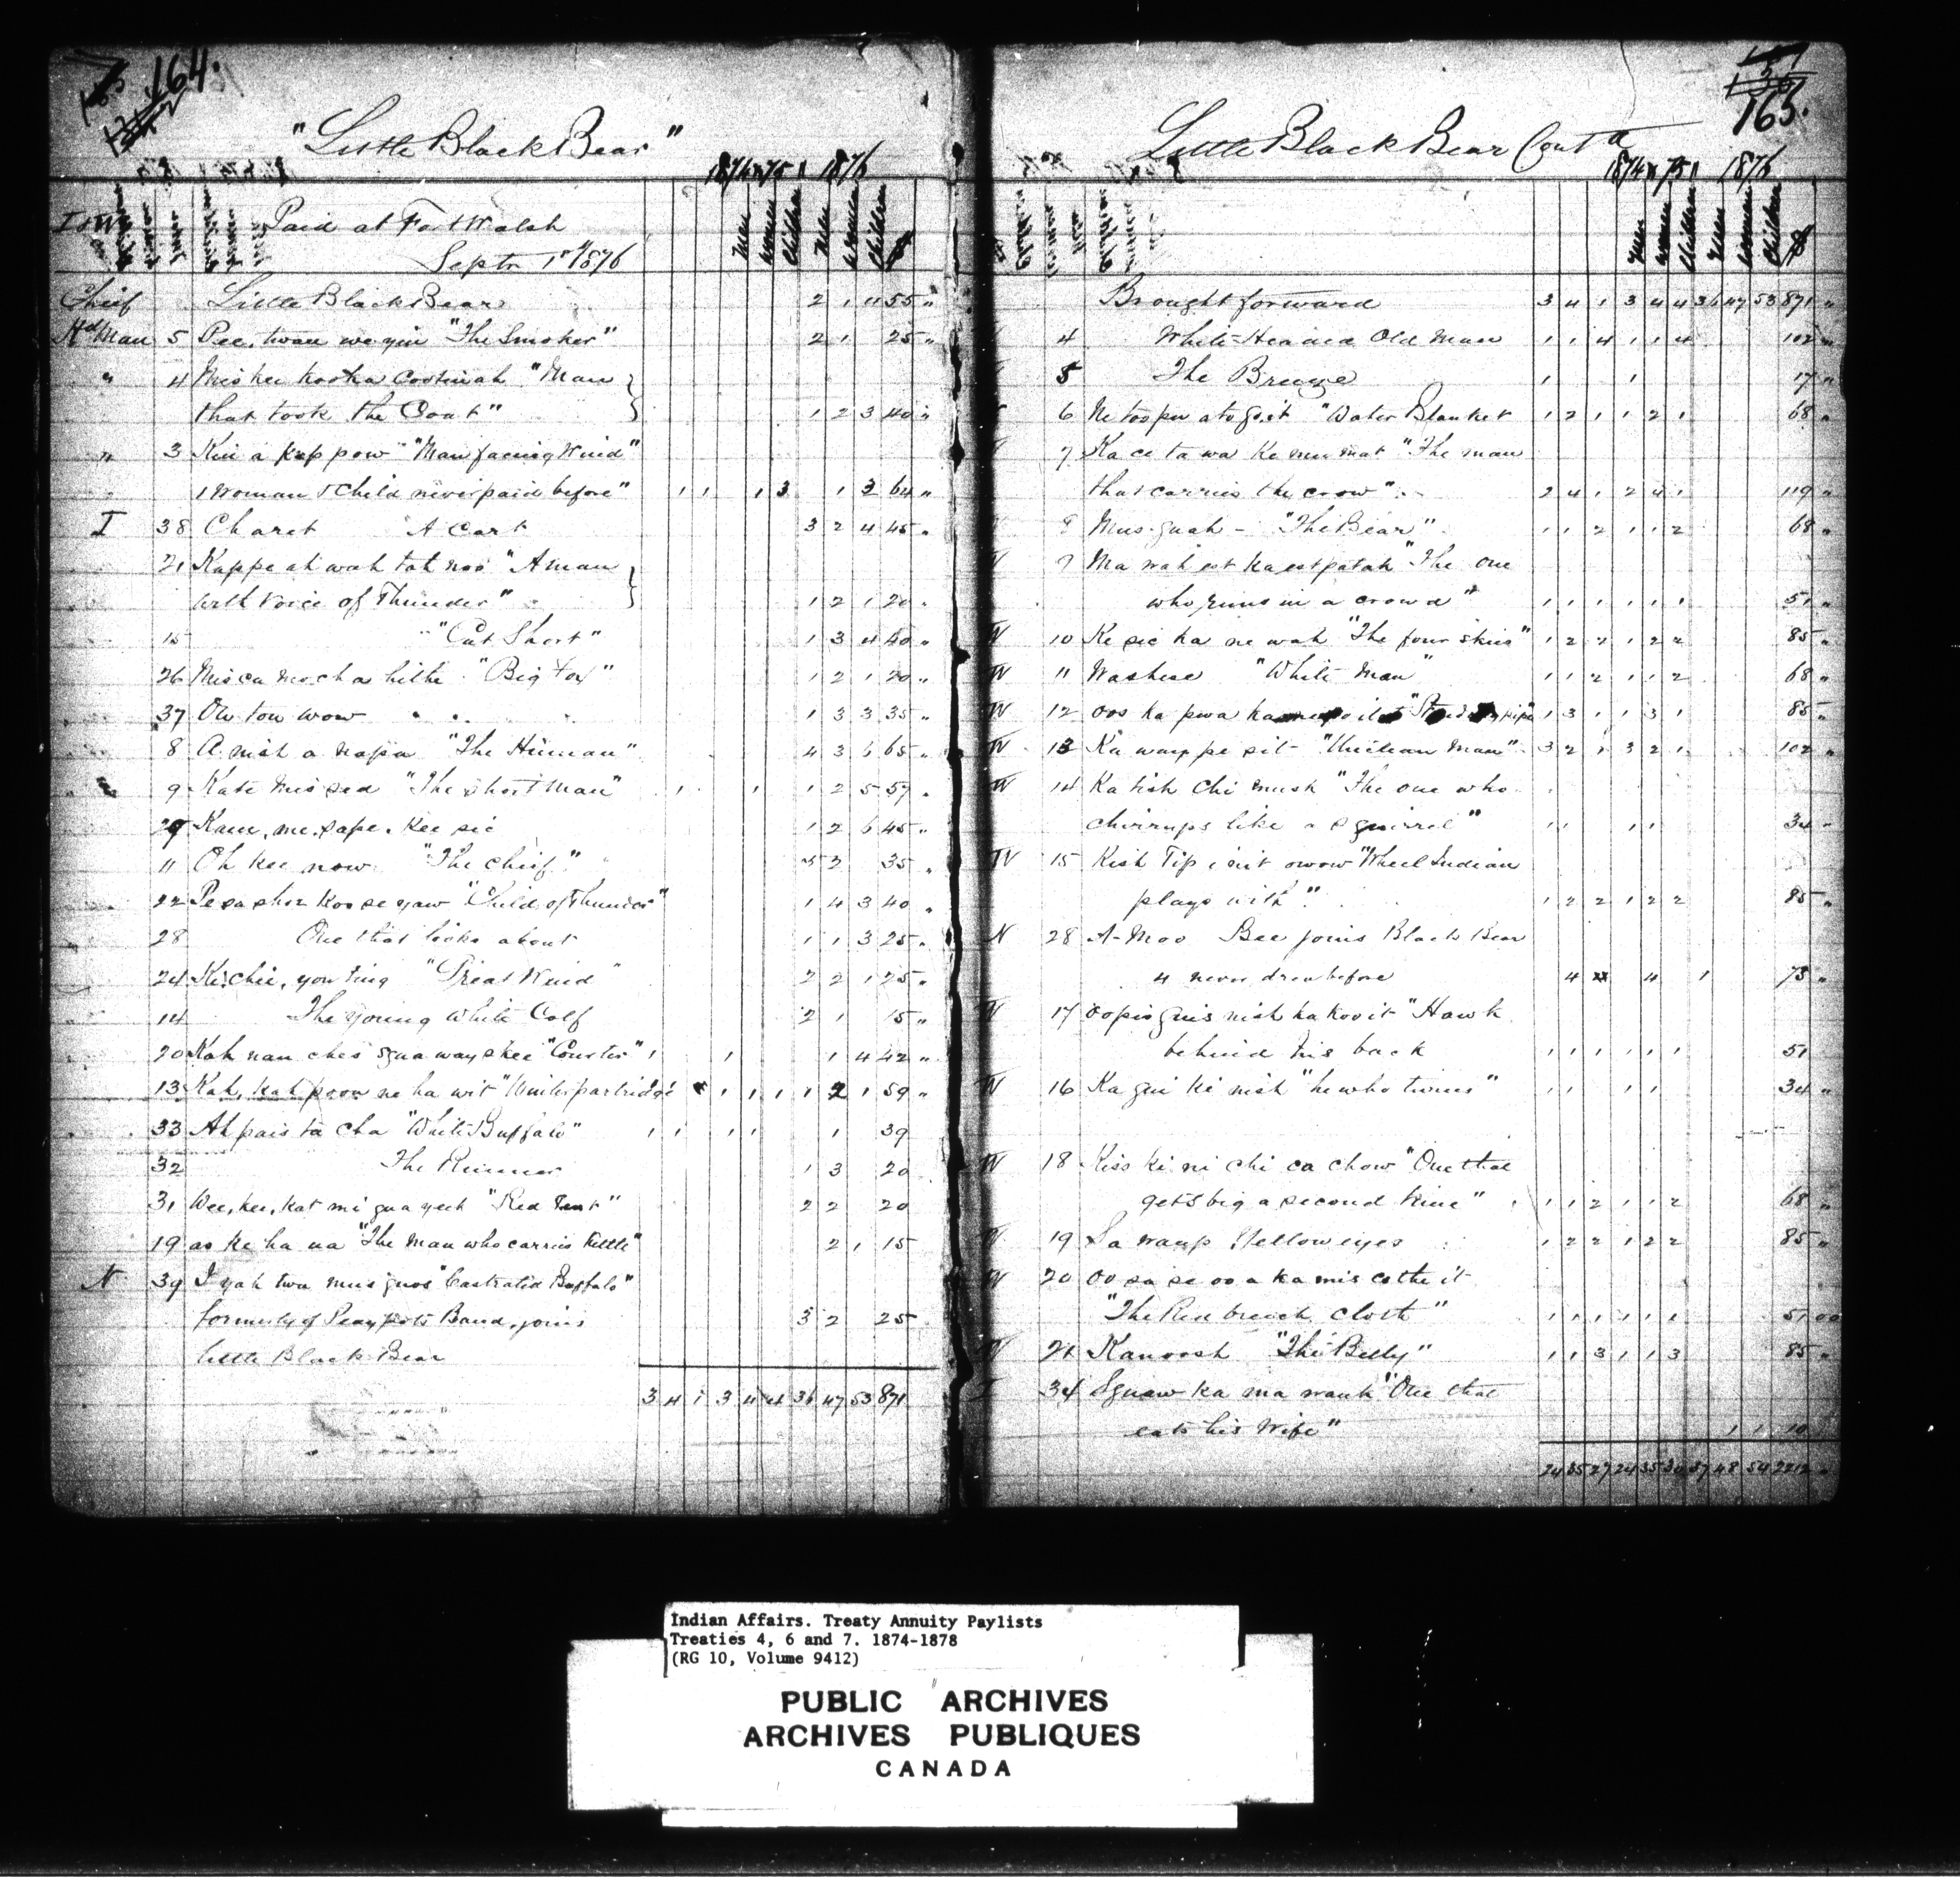 164.
"Little Black Bear"
1874 & 75 1876
Paid at Fort Walsh
Septr 1st 1876
Men Women Children Men Women Children $
Chief Little Black Bear 2 1 11 55 "
Hd Man 5 Pee, twau we gin "The Smoker" 2 1 25 "
" 4 Mis kee kootka cootinah "Man
that took the Coat" 1 2 3 40 "
" 3 Kin a kup pow "Man facing Wind"
1 Woman & Child never paid before" 1 1 1 3 1 3 64 "
I 38 Charet "A Cart 3 2 4 45 "
21 Kappe ah wah tah noo "A man
with Voice of Thunder" 1 2 1 20 "
15 "Cut Short" 1 3 4 40 "
26 Mis ca mo cha hithe "Big Fox" 1 2 1 20 "
37 Ow tou wow 1 3 3 35 "
8 A nish a napa "The Human" 4 3 6 65 "
9 Kate mis sed "The Short Man" 1 1 1 2 5 57 "
29 Kane, me, sape, Kee sic 1 2 6 45 "
11 Oh kee now "The Chief" 5 2 35 "
22 Pe sa shoz koo se yaw "Child of Thunder" 1 4 3 40 "
28 One that looks about 1 1 3 25 "
24 Ki, chee, you ting "Great Wind" 2 2 1 25 "
14 The Young White Calf 2 1 15 "
20 Kah nau ches squa way skee "Counter" 1 1 1 4 42 "
13 Kah, kah poon ne ha wit "Winter partridge 1 1 1 1 2 1 59 "
33 Ah pais ta cha "White Buffalo" 1 1 1 1 1 39
32 The Runner 1 3 20
31 Wee, kee, kat mi qua yech "Red Tent" 2 2 20
19 as ke ha na "The Man who carries Kettle" 2 1 15
N 39 I yah twa mus quos "Castrated Buffalo"
formerly of Peaypots Band, joins 3 2 25
little Black Bear
3 4 1 3 4 4 36 47 53 871
165.
Little Black Bear Contd
1874 & 75 1876
Men Women Children Men Women Children $
Brought forward 3 4 1 3 4 4 36 47 53 871 "
4 White Headed Old Man 1 1 4 1 1 4 102 "
5 The Breeze 1 1 17 "
6 Ne too pw ato go it "Water Blanket 1 2 1 1 2 1 68 "
7 Ka ce ta wa ke mu mat "The man
that carries the crow" 2 4 1 2 4 1 119 "
8 Mus-quah - "The Bear" 1 1 2 1 1 2 68 "
9 Ma wah est ka est patah "The one
who runs in a crowd" 1 1 1 1 1 1 51 "
N 10 Ke sic ka ne wah "The four skies" 1 2 2 1 2 2 85 "
N 11 Washese "White Man" 1 1 2 1 1 2 68 "
N 12 Oos ka pwa 1 3 1 1 3 1 85 "
N 13 Ka wayppe sit - "Unclean Man" 3 2 1 3 2 1 102 "
N 14 Ka tish chi mush "The one who
chirrups like a squirrel" 1 1 1 1 34 "
N 15 Kish Tip i nit owow "Wheel Indian
plays with" 1 2 2 1 2 2 85 "
N 28 A-Moo Bee joins Black Bear
4 never drew before 4 4 1 73 "
N 17 Oopis quis nish ka kovit "Hawk
behind his back 1 1 1 1 1 1 51
N 16 Ka qui ki nish "he who turns" 1 1 1 1 34 "
N 18 Kiss ki ni chi ca chow "One that
gets big a second time" 1 1 2 1 1 2 68 "
N 19 Sa waup Yellow eyes 1 2 2 1 2 2 85 "
N 20 Oo sa se oo a ka mis cothe it
"The Red breech cloth" 1 1 1 1 1 1 51 00
N 21 Kanoosh "The Belly" 1 1 3 1 1 3 85 "
I 34 Squaw ka ma wauk "One that
eats his Wife" 1 1 10
24 35 27 24 35 30 37 48 54 2212 "
Indian Affairs. Treaty Annuity Paylists
Treaties 4, 6 and 7. 1874-1878
(RG 10, Volume 9412)
PUBLIC ARCHIVES
ARCHIVES PUBLIQUES
CANADA